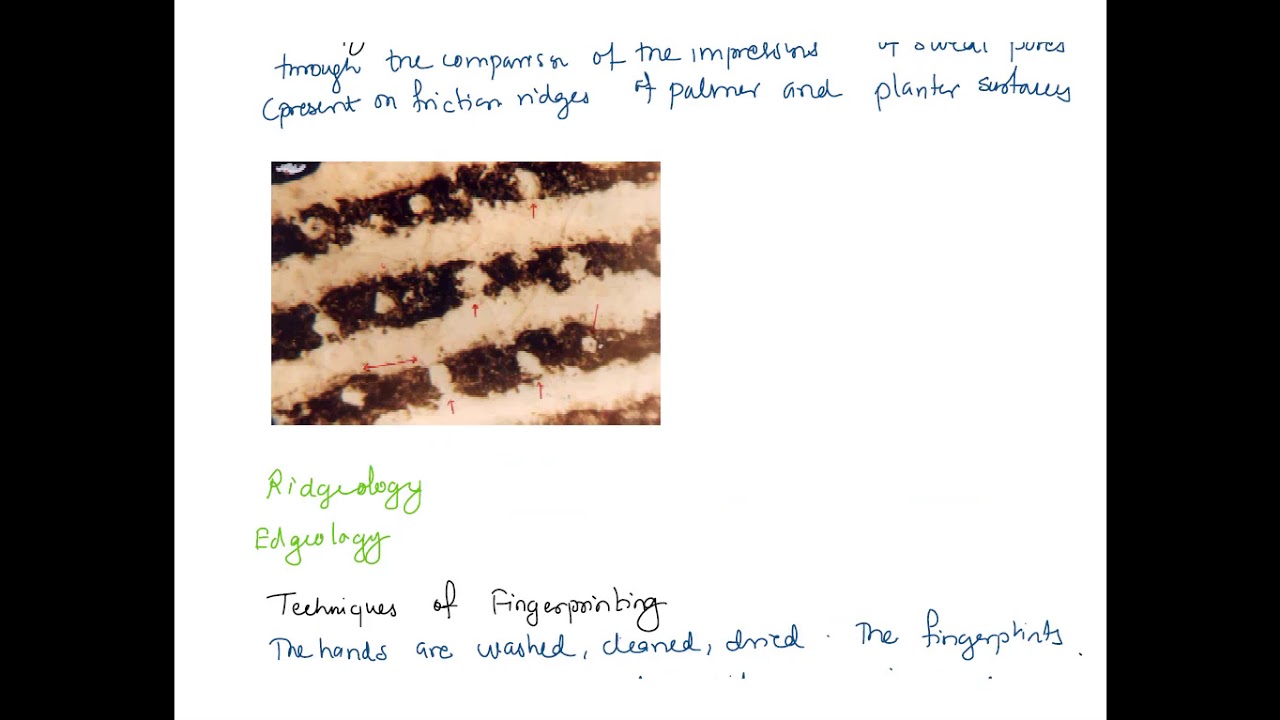 through the comparison of the impressions of sweat pores
(present on friction ridges of palmer and planter surfaces
Ridgeology
Edgeology
Techniques of Fingerprinting
The hands are washed, cleaned, dried. The fingerprints